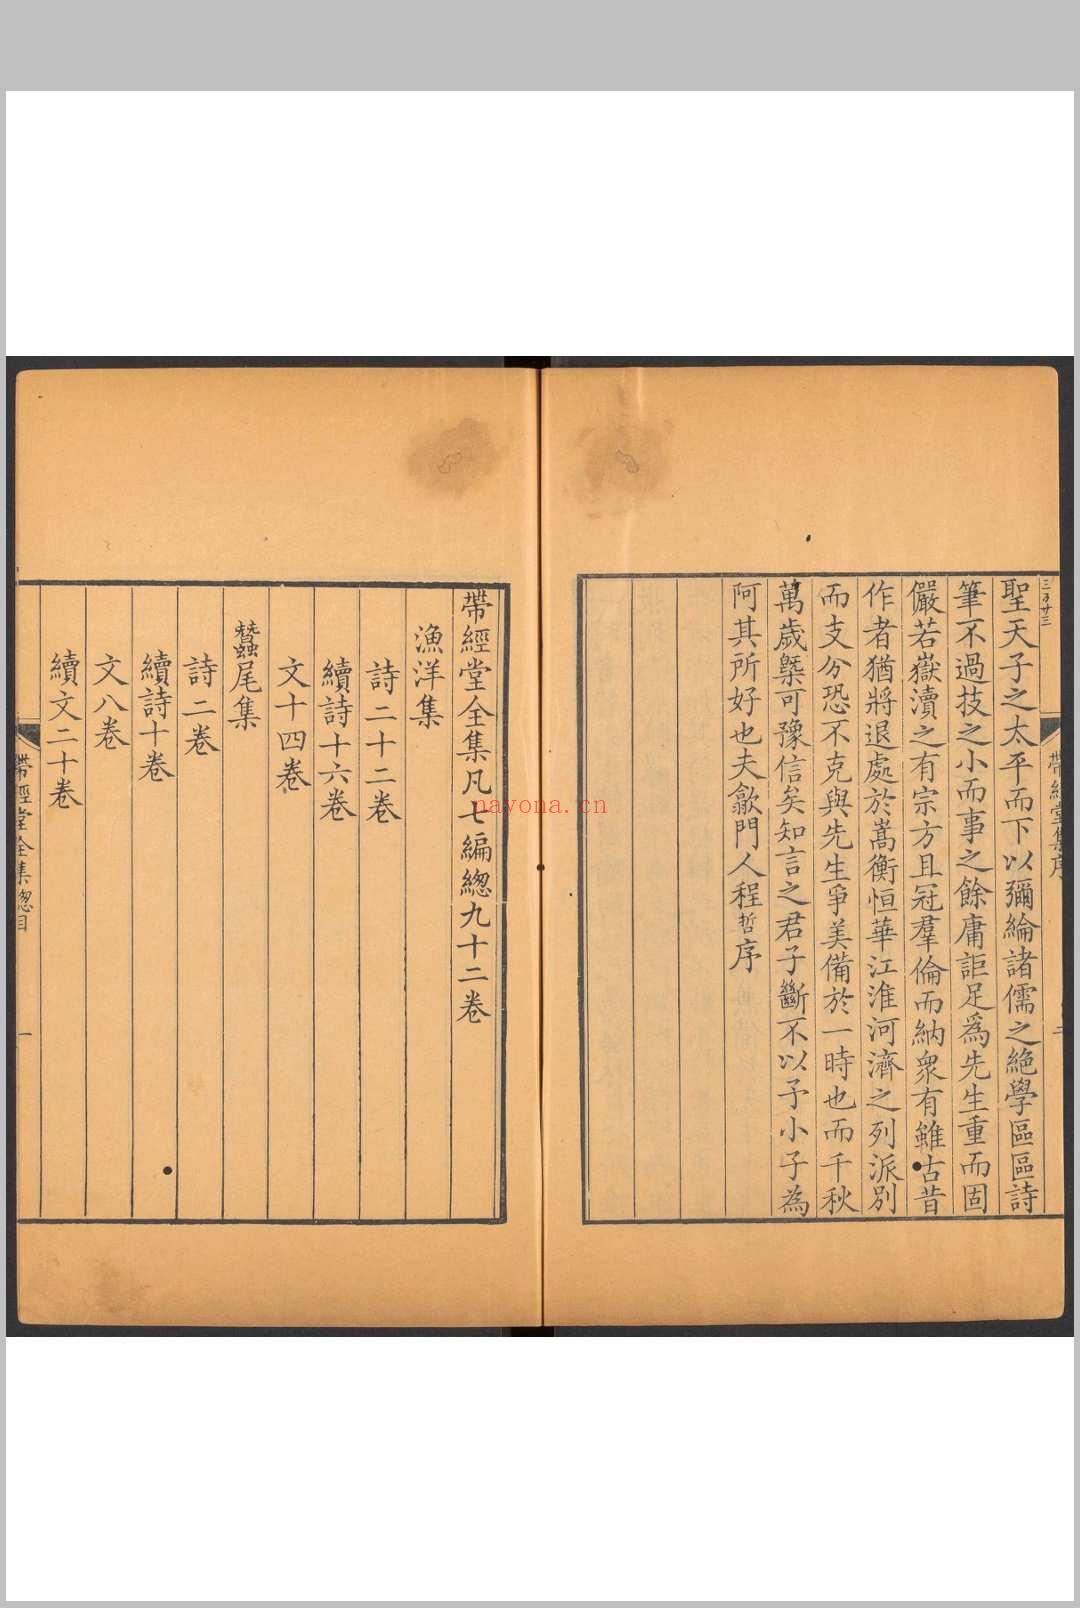 聖天子之太平而下以彌綸諸儒之絕學區區詩
筆不過技之小而事之餘庸詎足爲先生重而固
儼若嶽瀆之有宗方且冠羣倫而納衆有雖古昔
作者猶將退處於嵩衡恒華江淮河濟之列派別
而支分恐不克與先生爭美備於一時也而千秋
萬歲槩可豫信矣知言之君子斷不以予小子為
阿其所好也夫歙門人程哲序
帶經堂全集凡七編緫九十二卷
漁洋集
詩二十二卷
續詩十六卷
文十四卷
蠶尾集
詩二卷
續詩十卷
文八卷
續文二十卷
帶經堂全集緫目
一
帶經堂集序
nayona.cn